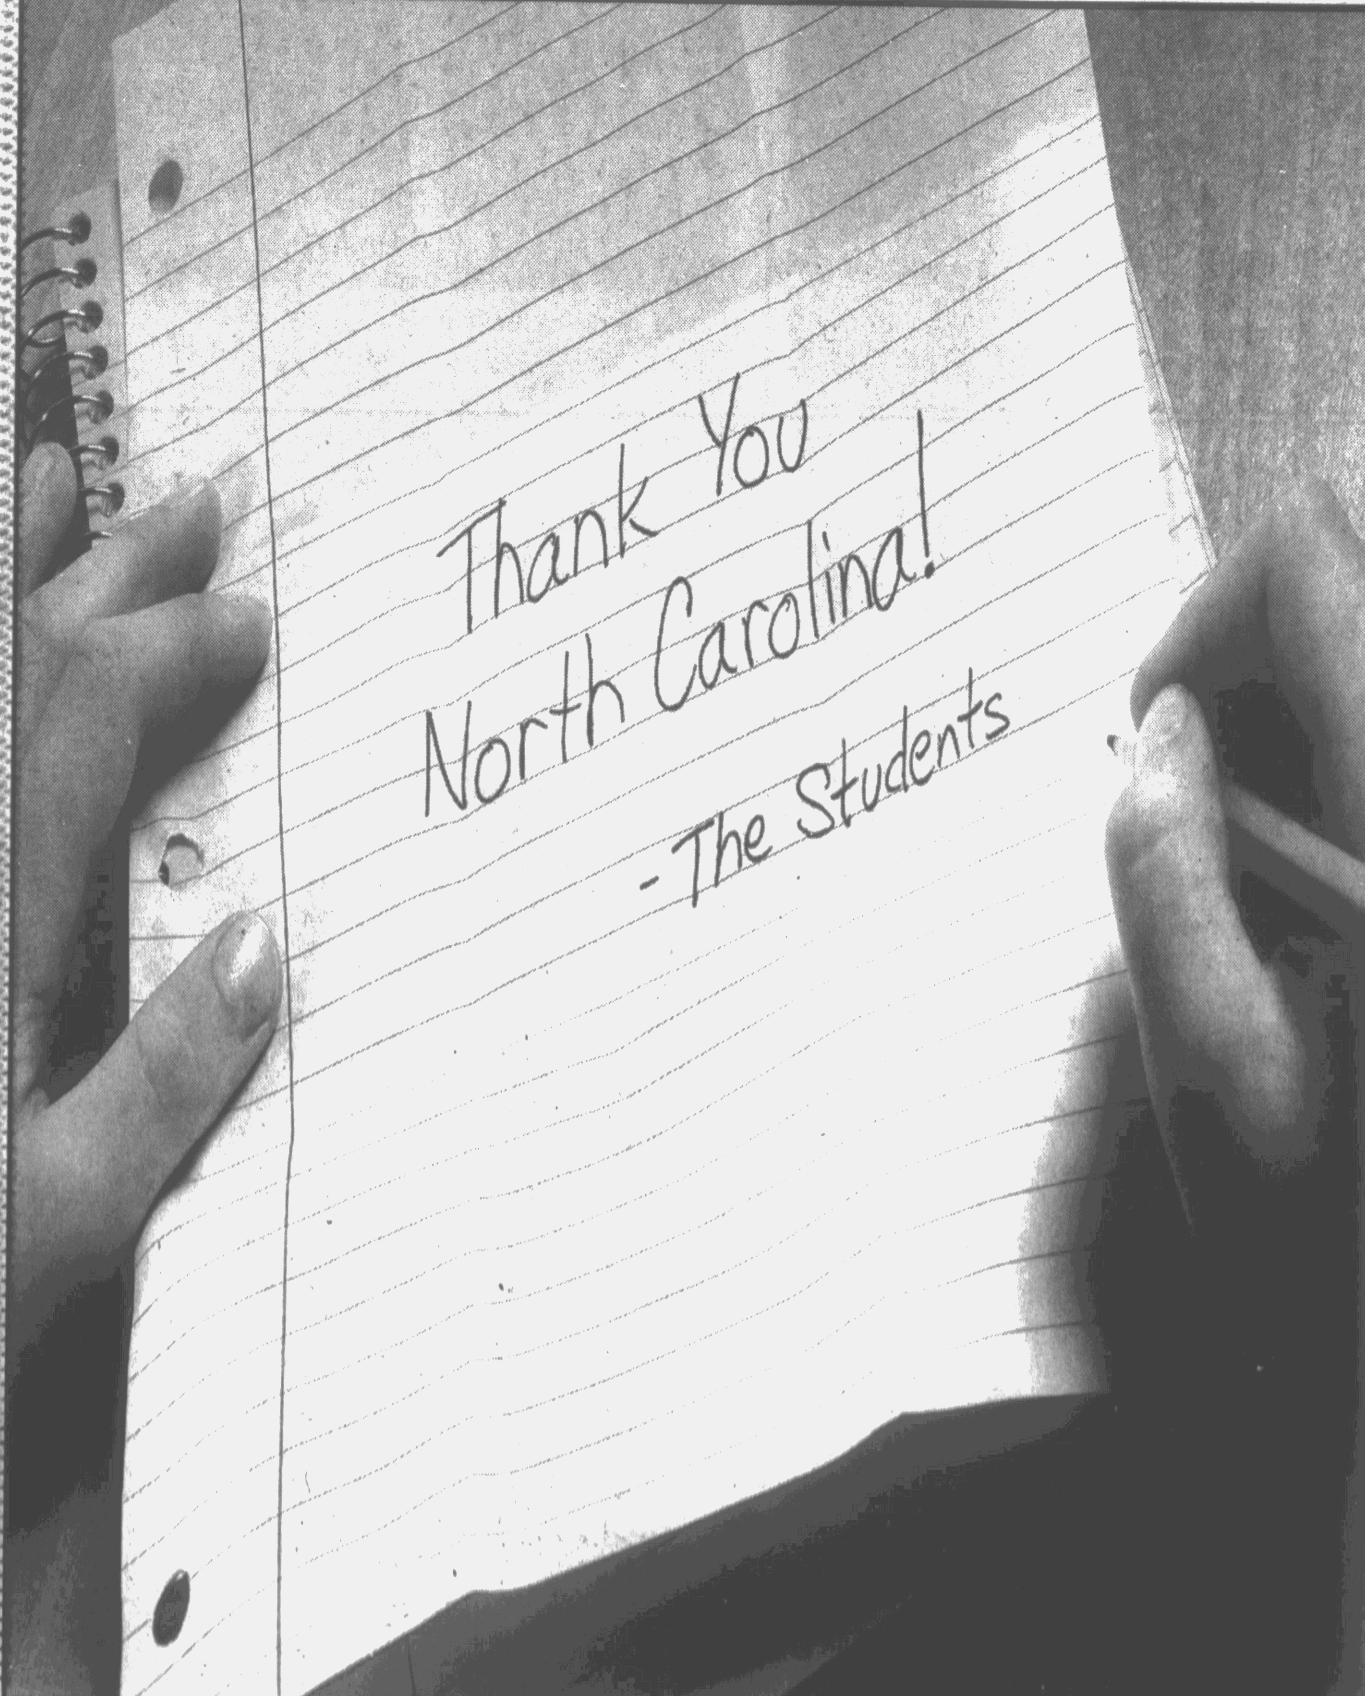 Thank You
North Carolina!
- The Students